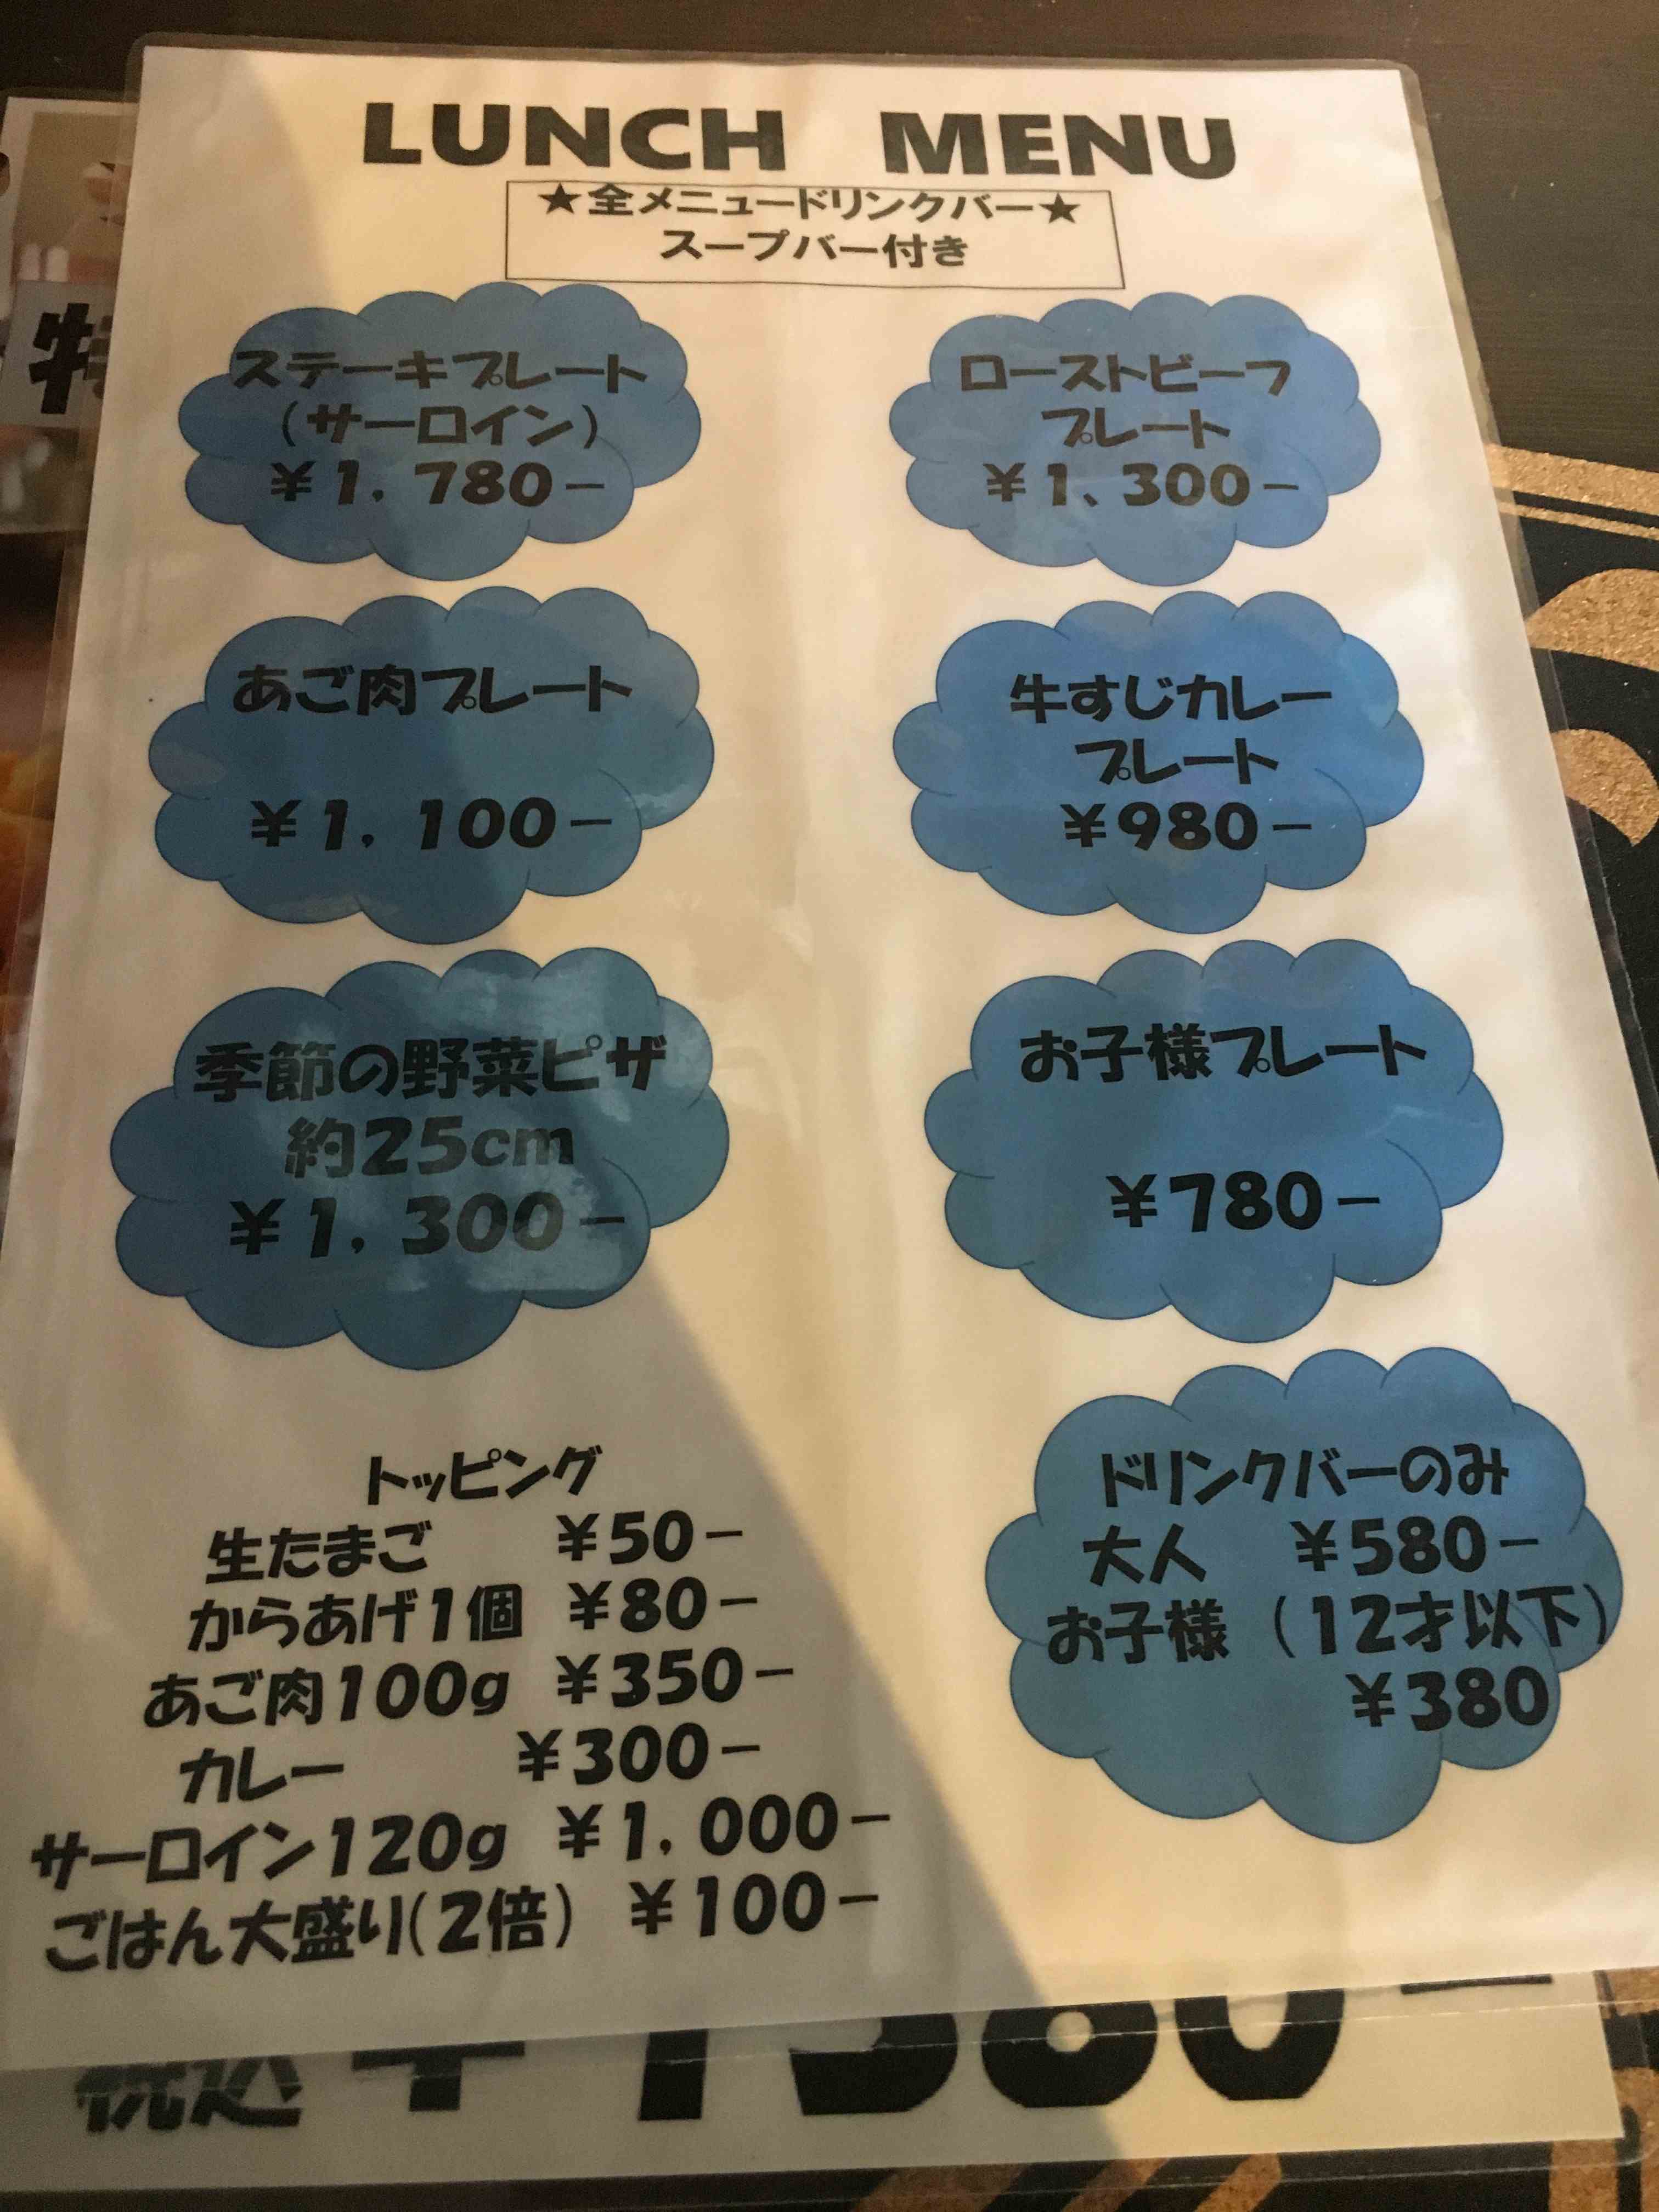 LUNCH MENU
★全メニュードリンクバー★
スープバー付き
ステーキプレート
（サーロイン）
￥1，780－
ローストビーフ
プレート
￥1、300－
あご肉プレート
￥1，100－
牛すじカレー
プレート
￥980－
季節の野菜ピザ
約25cm
￥1，300－
お子様プレート
￥780－
トッピング
生たまご ￥50－
からあげ1個 ￥80－
あご肉100g ￥350－
カレー ￥300－
サーロイン120g ￥1，000－
ごはん大盛り（2倍） ￥100－
ドリンクバーのみ
大人 ￥580－
お子様（12才以下）
￥380
特
税込